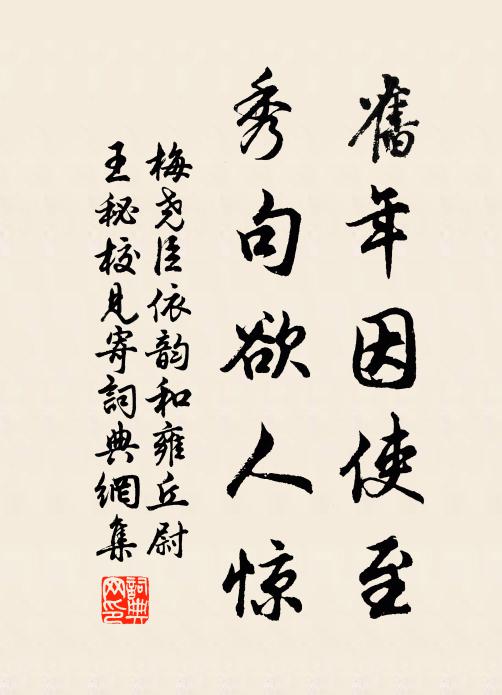 舊年因使至
秀句欲人惊
梅尧臣依韵和雍丘尉
王秘校見寄詞典網集
詞典网印